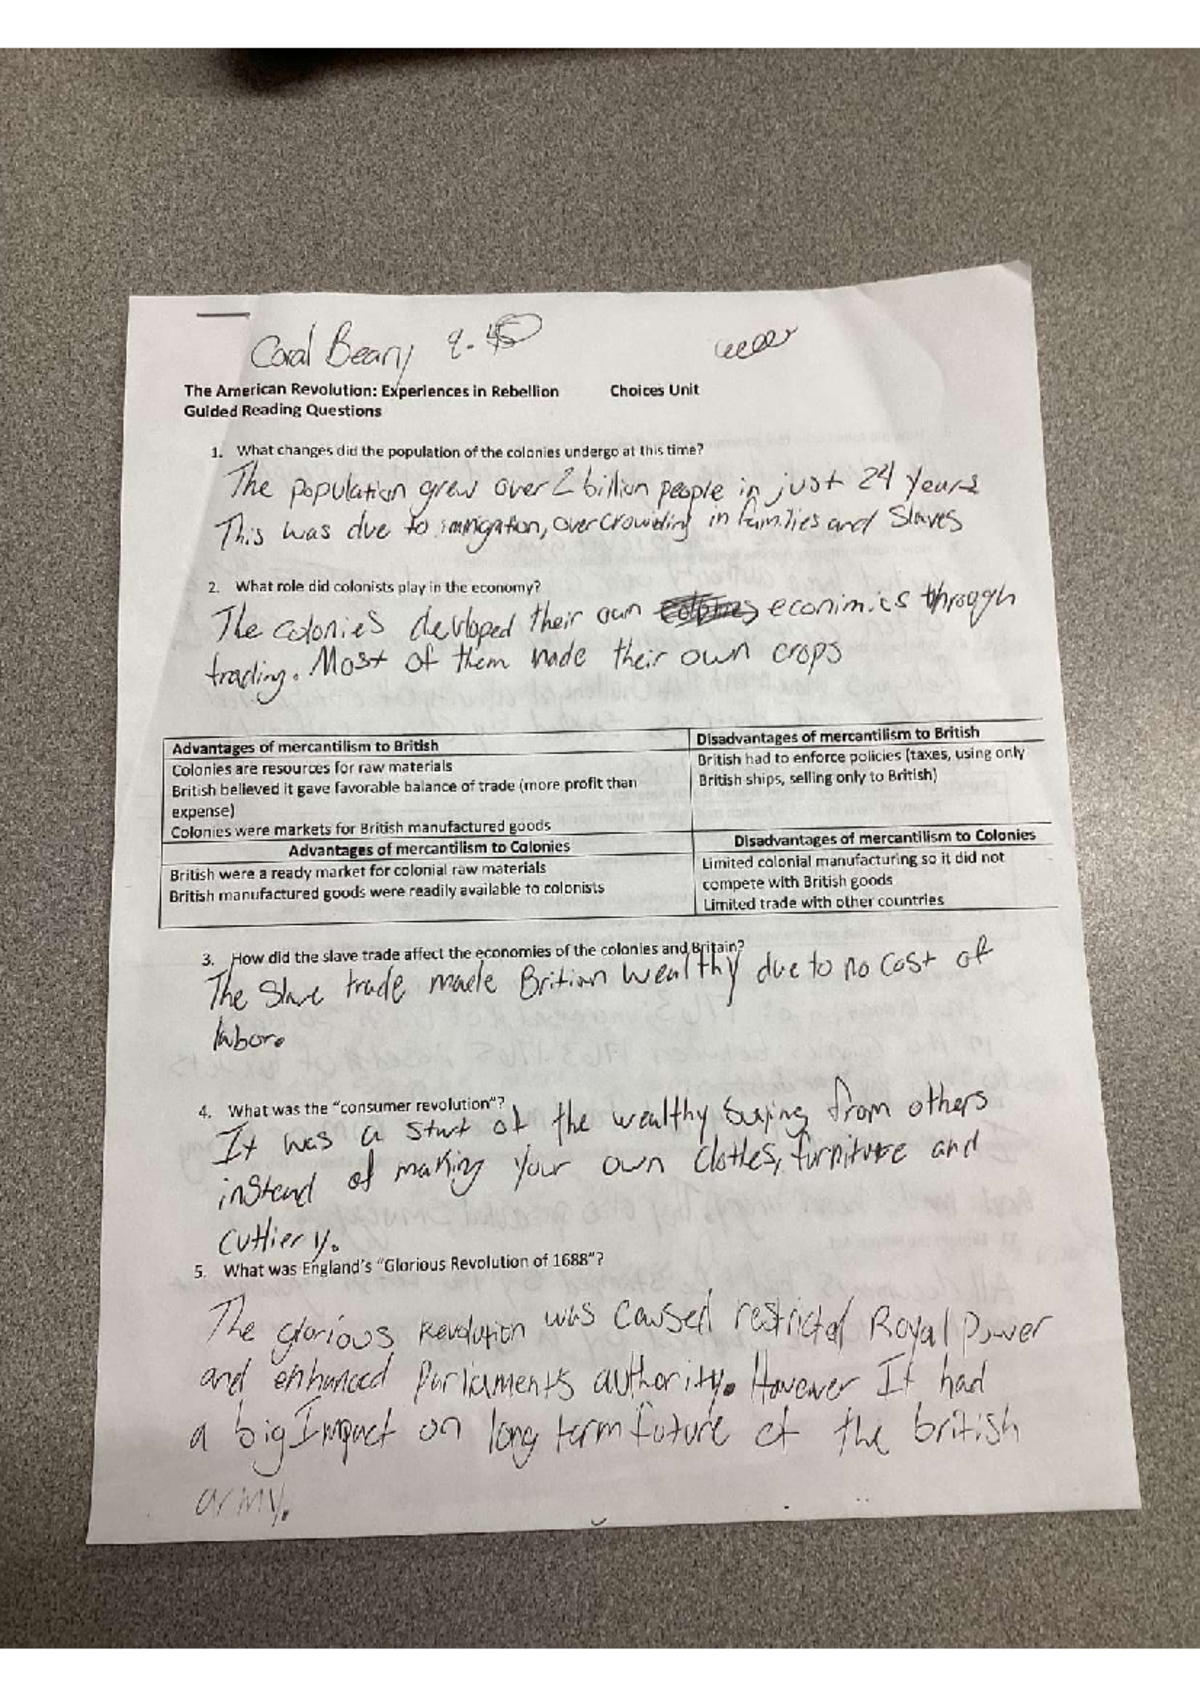 Coral Beany 9.
The American Revolution: Experiences in Rebellion Choices Unit
Guided Reading Questions
1. What changes did the population of the colonies undergo at this time?
The population grew over 2 billion people in just 24 years
This was due to immigration, overcrowding in families and Slaves
2. What role did colonists play in the economy?
The colonies devloped their own econimics through
trading. Most of them made their own crops
Advantages of mercantilism to British
Colonies are resources for raw materials
British believed it gave favorable balance of trade (more profit than
expense)
Colonies were markets for British manufactured goods
Disadvantages of mercantilism to British
British had to enforce policies (taxes, using only
British ships, selling only to British)
Advantages of mercantilism to Colonies
British were a ready market for colonial raw materials
British manufactured goods were readily available to colonists
Disadvantages of mercantilism to Colonies
Limited colonial manufacturing so it did not
compete with British goods
Limited trade with other countries
3. How did the slave trade affect the economies of the colonies and Britain?
The Slave trade made Britian wealthy due to no cost of
labor.
4. What was the "consumer revolution"?
It was a start of the wealthy buying from others
instead of making your own clothes, furniture and
cutliery.
5. What was England's "Glorious Revolution of 1688"?
The glorious Revolution was caused restricted Royal Power
and enhanced Parliaments authority. However It had
a big Impact on long term future of the british
army.